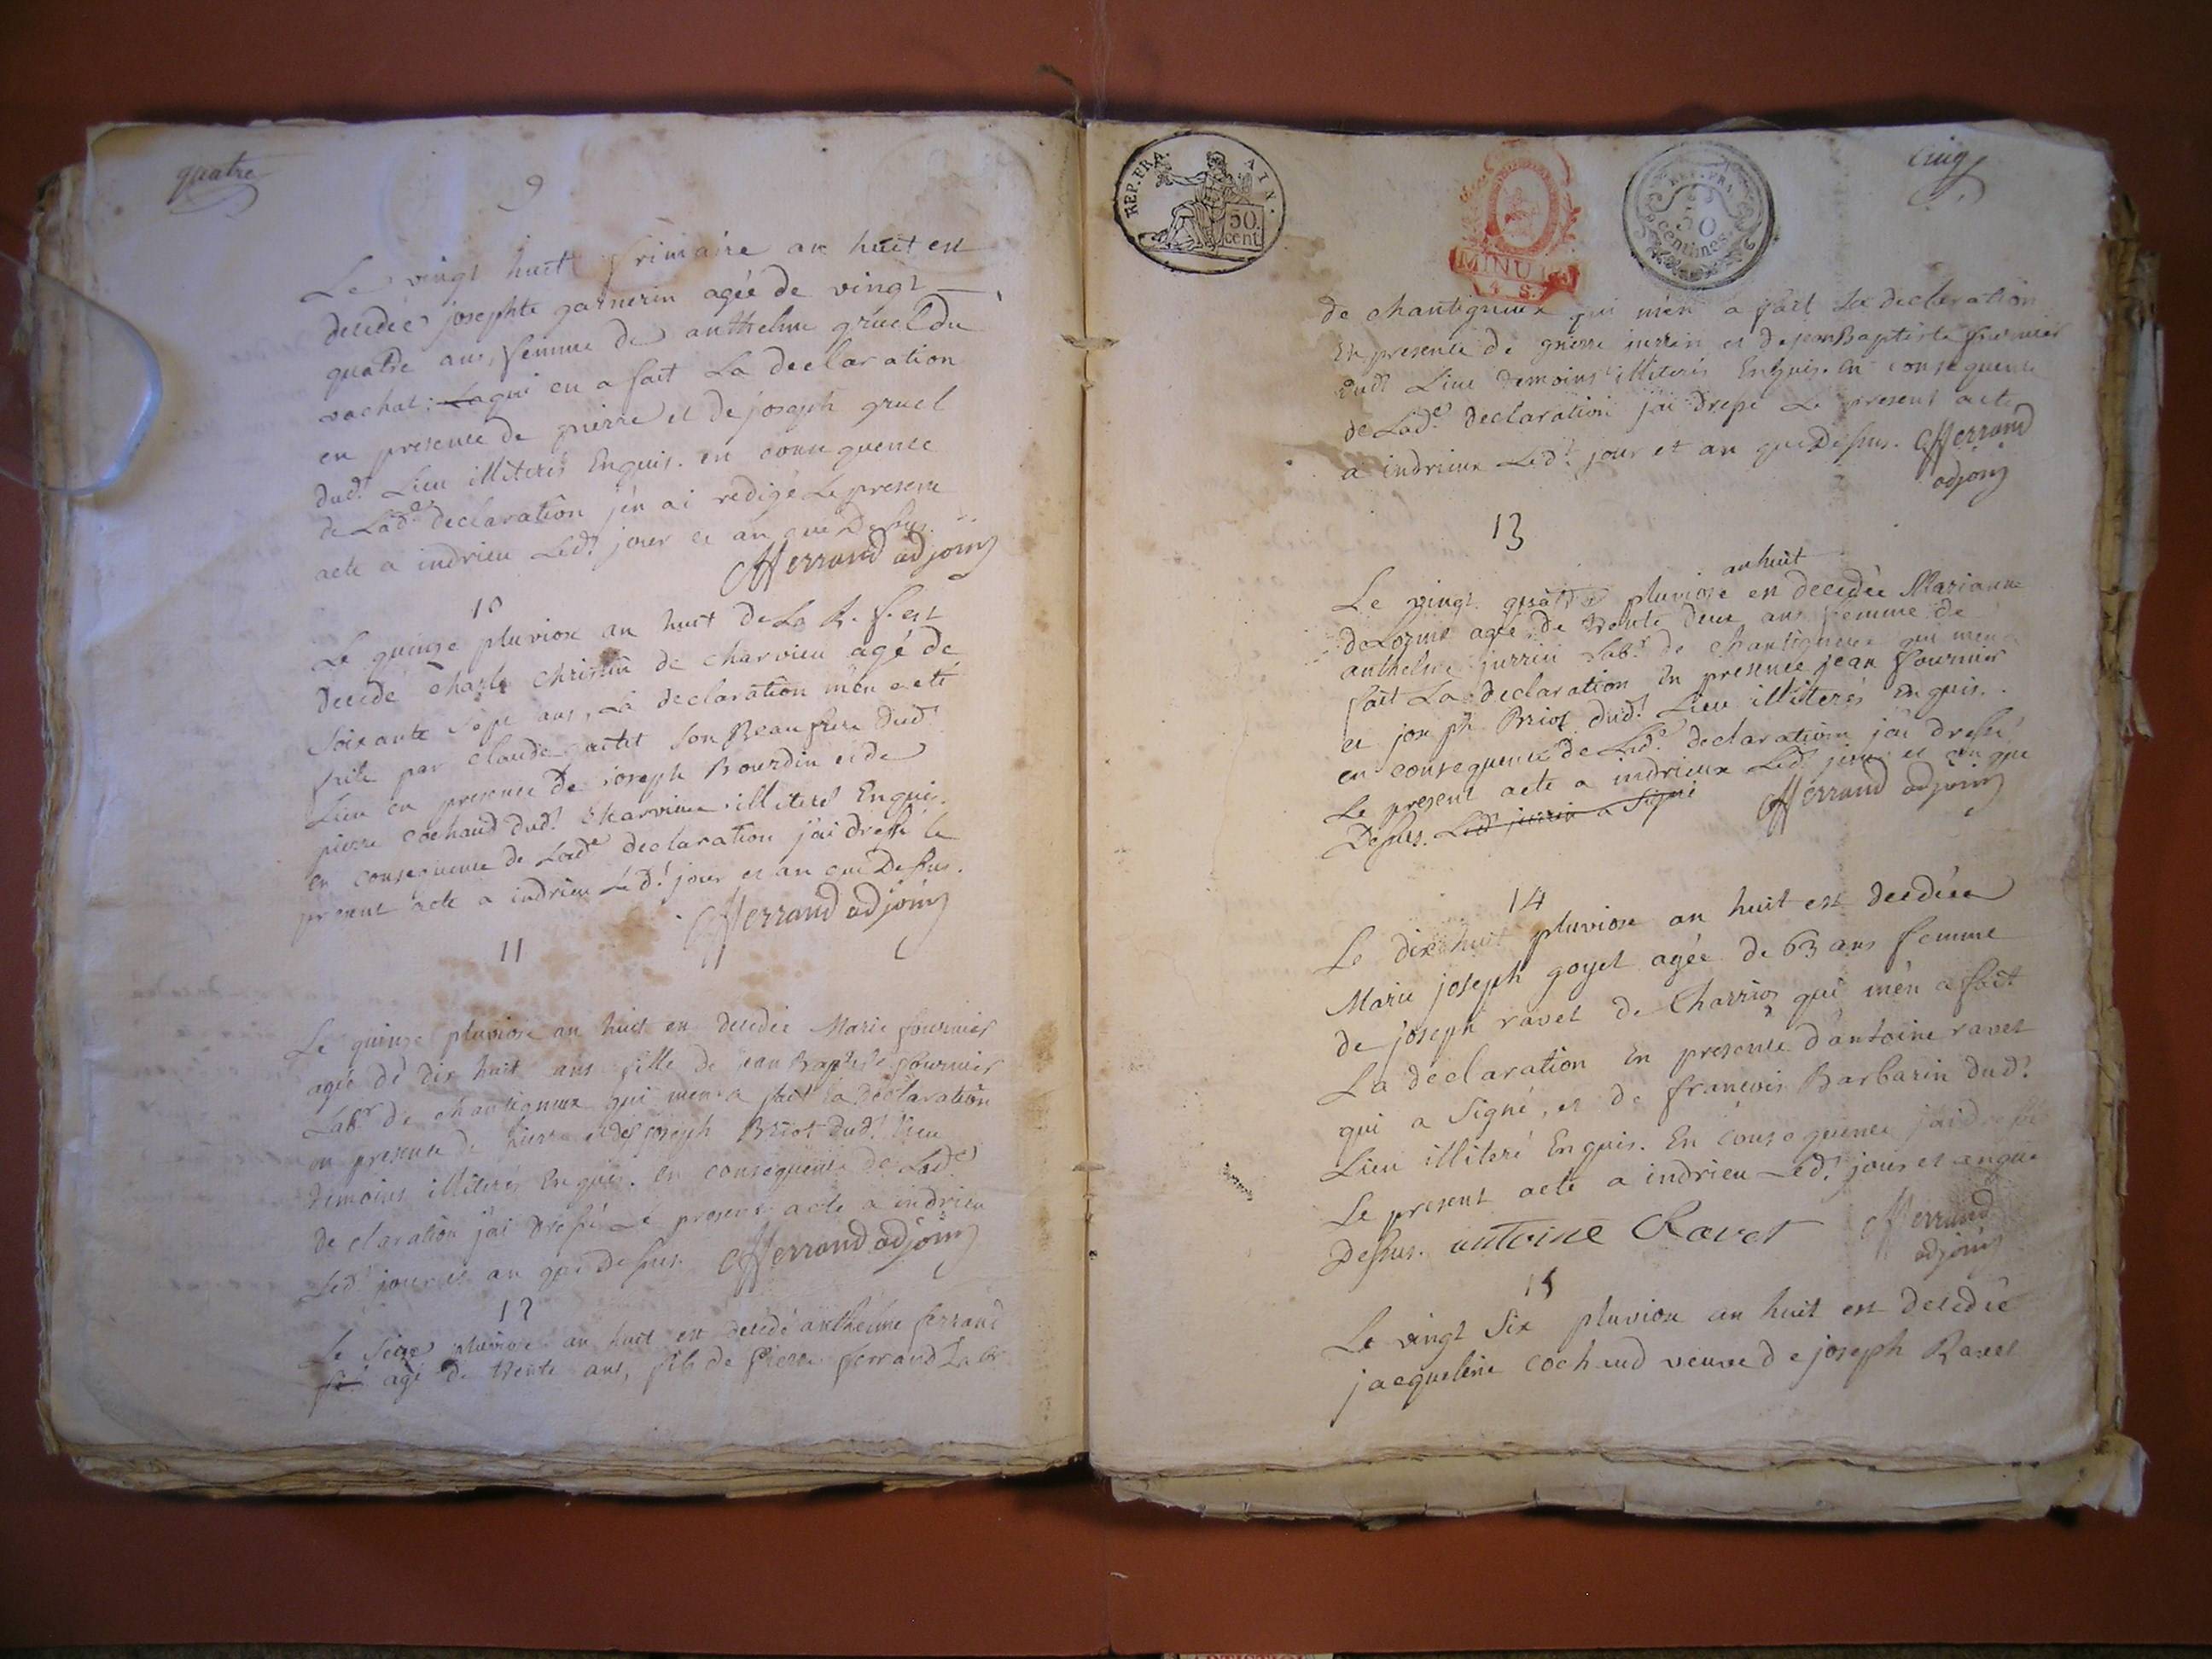 quatre
9
Le vingt huit frimaire an huit est
decedée josephte garnerin agée de vingt
quatre ans, femme de anthelme gruel du
vachat; La qui en a fait La declaration
en presence de pierre et de joseph gruel
dud.t Lieu illiterés Enquis. en consequence
de Lad.e declaration j'en ai redigé Le present
acte a indrieu Led.t jour et an que Dessus.
ferrand adjoint
10
Le quinze pluviose an huit de La R. f. est
decedé Charle Christin de Charvieu agé de
soixante sept ans, La declaration m'en a eté
faite par Claude son Beau frere dud.t
Lieu en presence de joseph Bourdin et de
pierre cochaud dud.t Charvieux illiterés Enquis.
en consequence de Lad.e declaration j'ai dressé le
present acte a indrieu Led.t jour et an que Dessus.
ferrand adjoint
11
Le quinze pluviose an huit est decedée Marie fournier
agée de dix huit ans fille de jean Baptiste fournier
Lab.r de chantigneux qui m'en a fait la declaration
en presence de pierre et de joseph Briot dud.t Lieu
temoins illiterés Enquis. en consequence de Lad.e
declaration j'ai dressé Le present acte a indrieu
Led.t jour et an que dessus. ferrand adjoint
12
Le seize pluviose an huit est decedé anthelme ferrand
agé de trente ans, fils de Pierre ferrand Lab.r
REP. FRA. AIN.
50
cent
MINU
4 S.
REP. FRA
50
centimes
cinq
de chantigneux qui m'en a fait La declaration
En presence de pierre juzzin et de jean Baptiste fournier
dud.t Lieu temoins illiterés Enquis. En consequence
de Lad.e declaration j'ai dressé Le present acte
a indrieux Led.t jour et an que Dessus. ferrand
adjoint
13
an huit
Le vingt quatre pluviose est decedée Marianne
deLorme agée de trente deux ans femme de
anthelme juzzin Lab.r de chantigneux qui m'en a
fait La declaration En presence jean fournier
et joseph Briot dud.t Lieu illiterés Enquis.
en consequence de Lad.e declaration j'ai dressé
Le present acte a indrieux Led.t jour et an que
Dessus. Led.t juzzin a signé ferrand adjoint
14
Le dix huit pluviose an huit est decedée
Marie joseph goyet agée de 63 ans femme
de joseph ravet de Charrioz qui m'en a fait
La declaration En presence d'antoine ravet
qui a signé, et de francois Barbarin dud.t
Lieu illiteré Enquis. En consequence j'ai dressé
Le present acte a indrieu Led.t jour et an que
Dessus. antoine Ravet ferrand
adjoint
15
Le vingt six pluviose an huit est decedée
jacqueline cochaud veuve de joseph Ravet